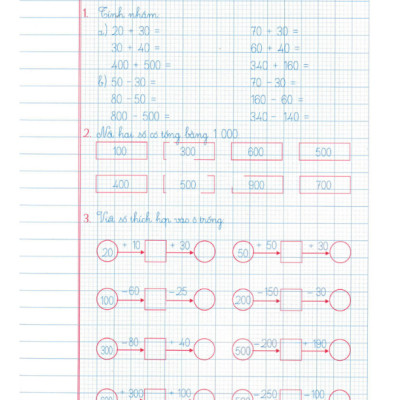 1. Tính nhẩm
a) 20 + 30 = 70 + 30 =
30 + 40 = 60 + 40 =
400 + 500 = 340 + 160 =
b) 50 - 30 = 70 - 30 =
80 - 50 = 160 - 60 =
800 - 500 = 340 - 140 =
2. Nối hai số có tổng bằng 1 000
100 300 600 500
400 500 900 700
3. Viết số thích hợp vào ô trống
20 + 10 + 30 50 + 50 + 30
100 - 60 - 25 200 - 150 - 30
300 - 80 + 40 500 - 200 + 190
+ 300 + 100 - 250 - 100